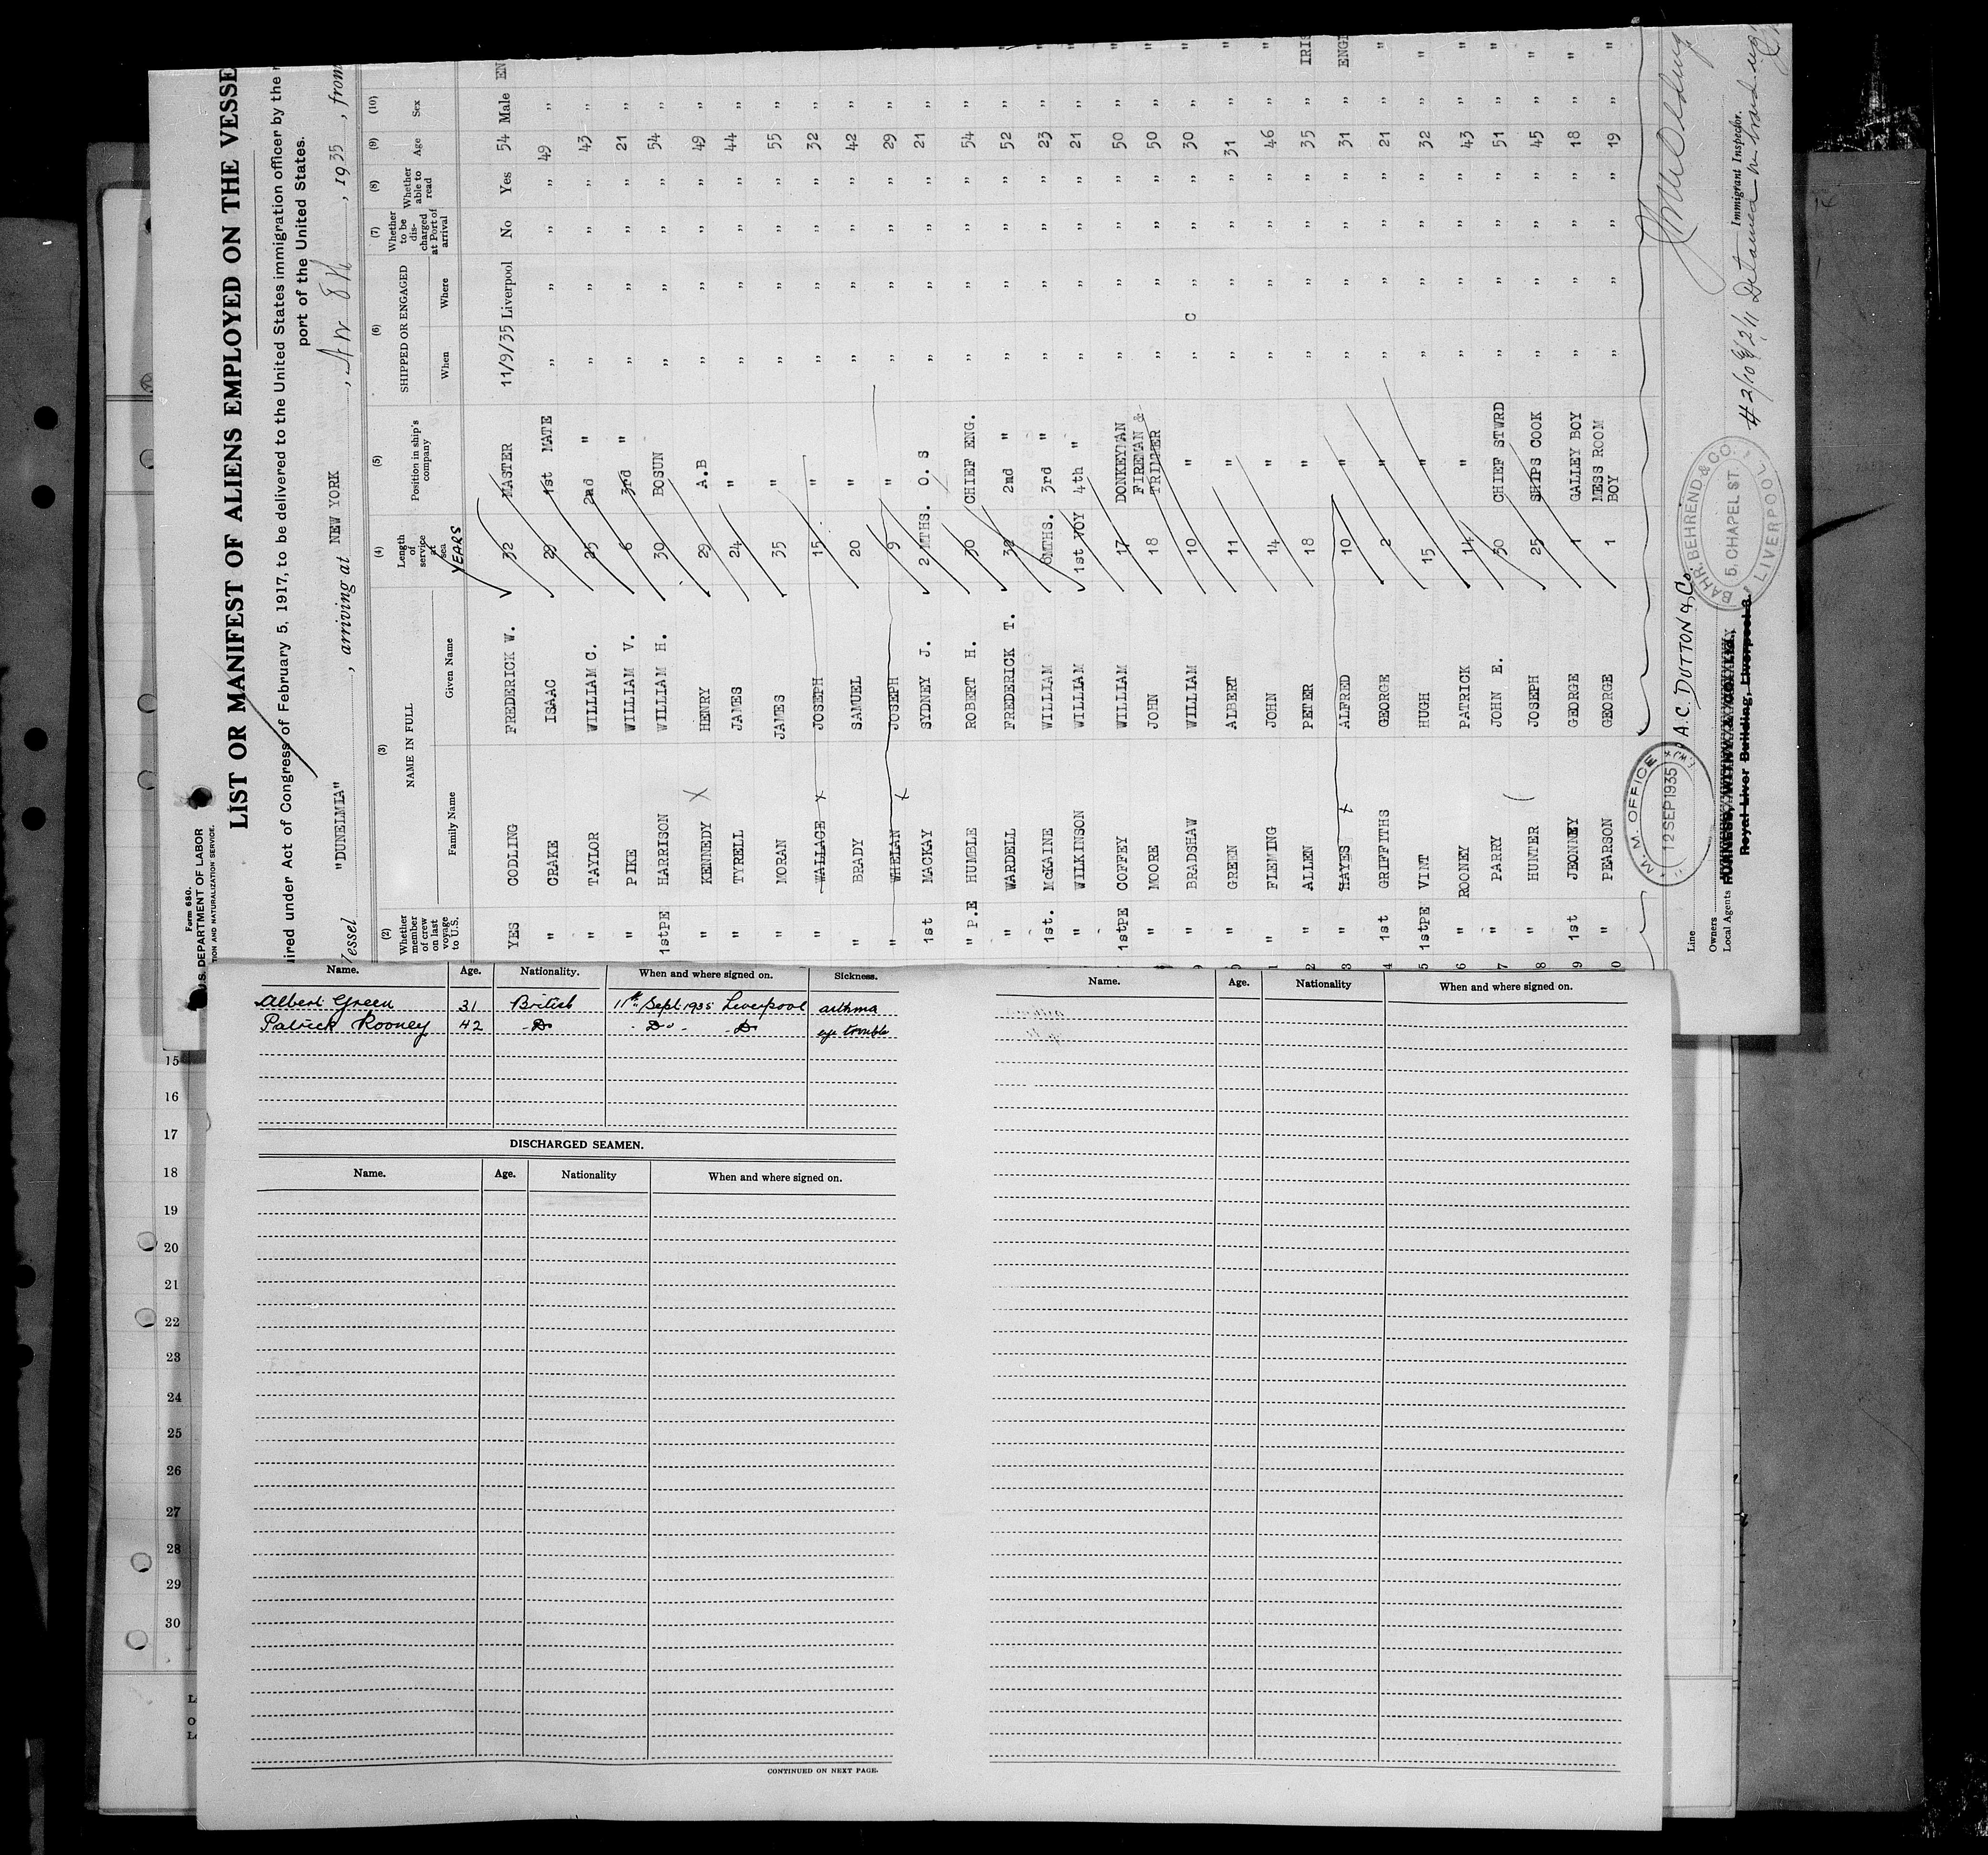 Form 680.
U.S. DEPARTMENT OF LABOR
TION AND NATURALIZATION SERVICE.
LIST OR MANIFEST OF ALIENS EMPLOYED ON THE VESSE
ired under Act of Congress of February 5, 1917, to be delivered to the United States immigration officer by the
port of the United States.
Vessel "DUNELMIA", arriving at NEW YORK, 1935, from
(2) (3) (4) (5) (6) (7) (8) (9) (10)
Whether member of crew on last voyage to U.S. NAME IN FULL Family Name Given Name Length of service at sea YEARS Position in ship's company SHIPPED OR ENGAGED When Where Whether to be discharged at Port of arrival Whether able to read Age Sex
YES CODLING FREDERICK W. 32 MASTER 11/9/35 Liverpool No Yes 54 Male EN
" CRAKE ISAAC 29 1st MATE " " " " 49 "
" TAYLOR WILLIAM C. 25 2nd " " " " " 43 "
" PIKE WILLIAM V. 6 3rd " " " " " 21 "
1stPE HARRISON WILLIAM H. 30 BOSUN " " " " 54 "
" KENNEDY X HENRY 29 A.B " " " " 49 "
" TYRELL JAMES 24 " " " " " 44 "
" MORAN JAMES 35 " " " " " 55 "
" WALLACE x JOSEPH 15 " " " " " 32 "
" BRADY SAMUEL 20 " " " " " 42 "
" WHELAN x JOSEPH 9 " " " " " 29 "
1st MACKAY SYDNEY J. 2 MTHS. O. S " " " " 21 "
" P.E HUMBLE ROBERT H. 30 CHIEF ENG. " " " " 54 "
" WARDELL FREDERICK T. 32 2nd " " " " " 52 "
1st. McKAINE WILLIAM 6MTHS. 3rd " " " " " 23 "
" WILKINSON WILLIAM 1st VOY 4th " " " " " 21 "
1stPE COFFEY WILLIAM 17 DONKEYMAN " " " " 50 "
" MOORE JOHN 18 FIREMAN & TRIMMER " " " " 50 "
" BRADSHAW WILLIAM 10 " " C " " " 30 "
" GREEN ALBERT 11 " " " " " 31 "
" FLEMING JOHN 14 " " " " " 46 "
" ALLEN PETER 18 " " " " " 35 " IRIS
" HAYES x ALFRED 10 " " " " " 31 " ENGL
1st GRIFFITHS GEORGE 2 " " " " " 21 " "
1stPE VINT HUGH 15 " " " " " 32 " "
" ROONEY PATRICK 14 " " " " " 43 " "
" PARRY JOHN E. 30 CHIEF STWRD " " " " 51 " "
" HUNTER JOSEPH 25 SHIPS COOK " " " " 45 " "
1st JEONNEY GEORGE 1 GALLEY BOY " " " " 18 " "
" PEARSON GEORGE 1 MESS ROOM BOY " " " " 19 " "
Line
Owners A.C. DUTTON & Co.
Local Agents
Royal Liver Building, Liverpool 3.
M. M. OFFICE
12 SEP 1935
BAHR, BEHREND & CO.
5, CHAPEL ST.
LIVERPOOL
Immigrant Inspector.
Detained on board
Name. Age. Nationality. When and where signed on. Sickness.
Albert Green 31 British 11th Sept 1935 Liverpool asthma
Patrick Rooney 42 -Do -Do- -Do eye trouble
DISCHARGED SEAMEN.
Name. Age. Nationality When and where signed on.
CONTINUED ON NEXT PAGE.
Name. Age. Nationality When and where signed on.
15
16
17
18
19
20
21
22
23
24
25
26
27
28
29
30